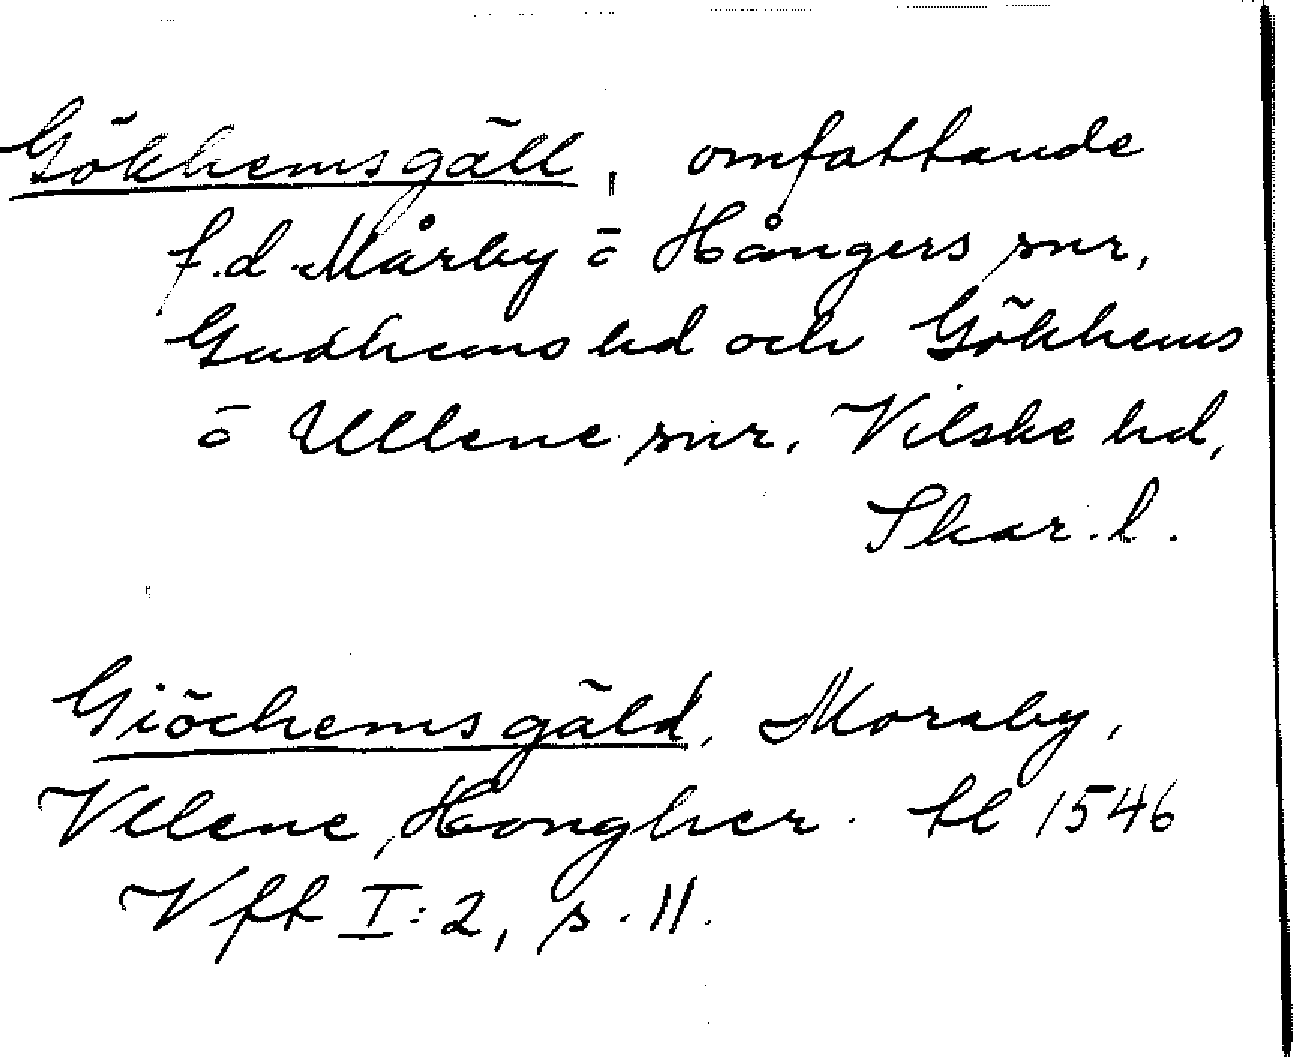 Gökhemsgäll, omfattande
f.d. Mårby o Hångers snr,
Gudhems hd och Gökhems
o Ullene snr, Vilske hd,
Skar. l.
Giöchemsgäld, Moraby,
Vllene, Hongher. tl 1546
Vfft I:2, s. 11.